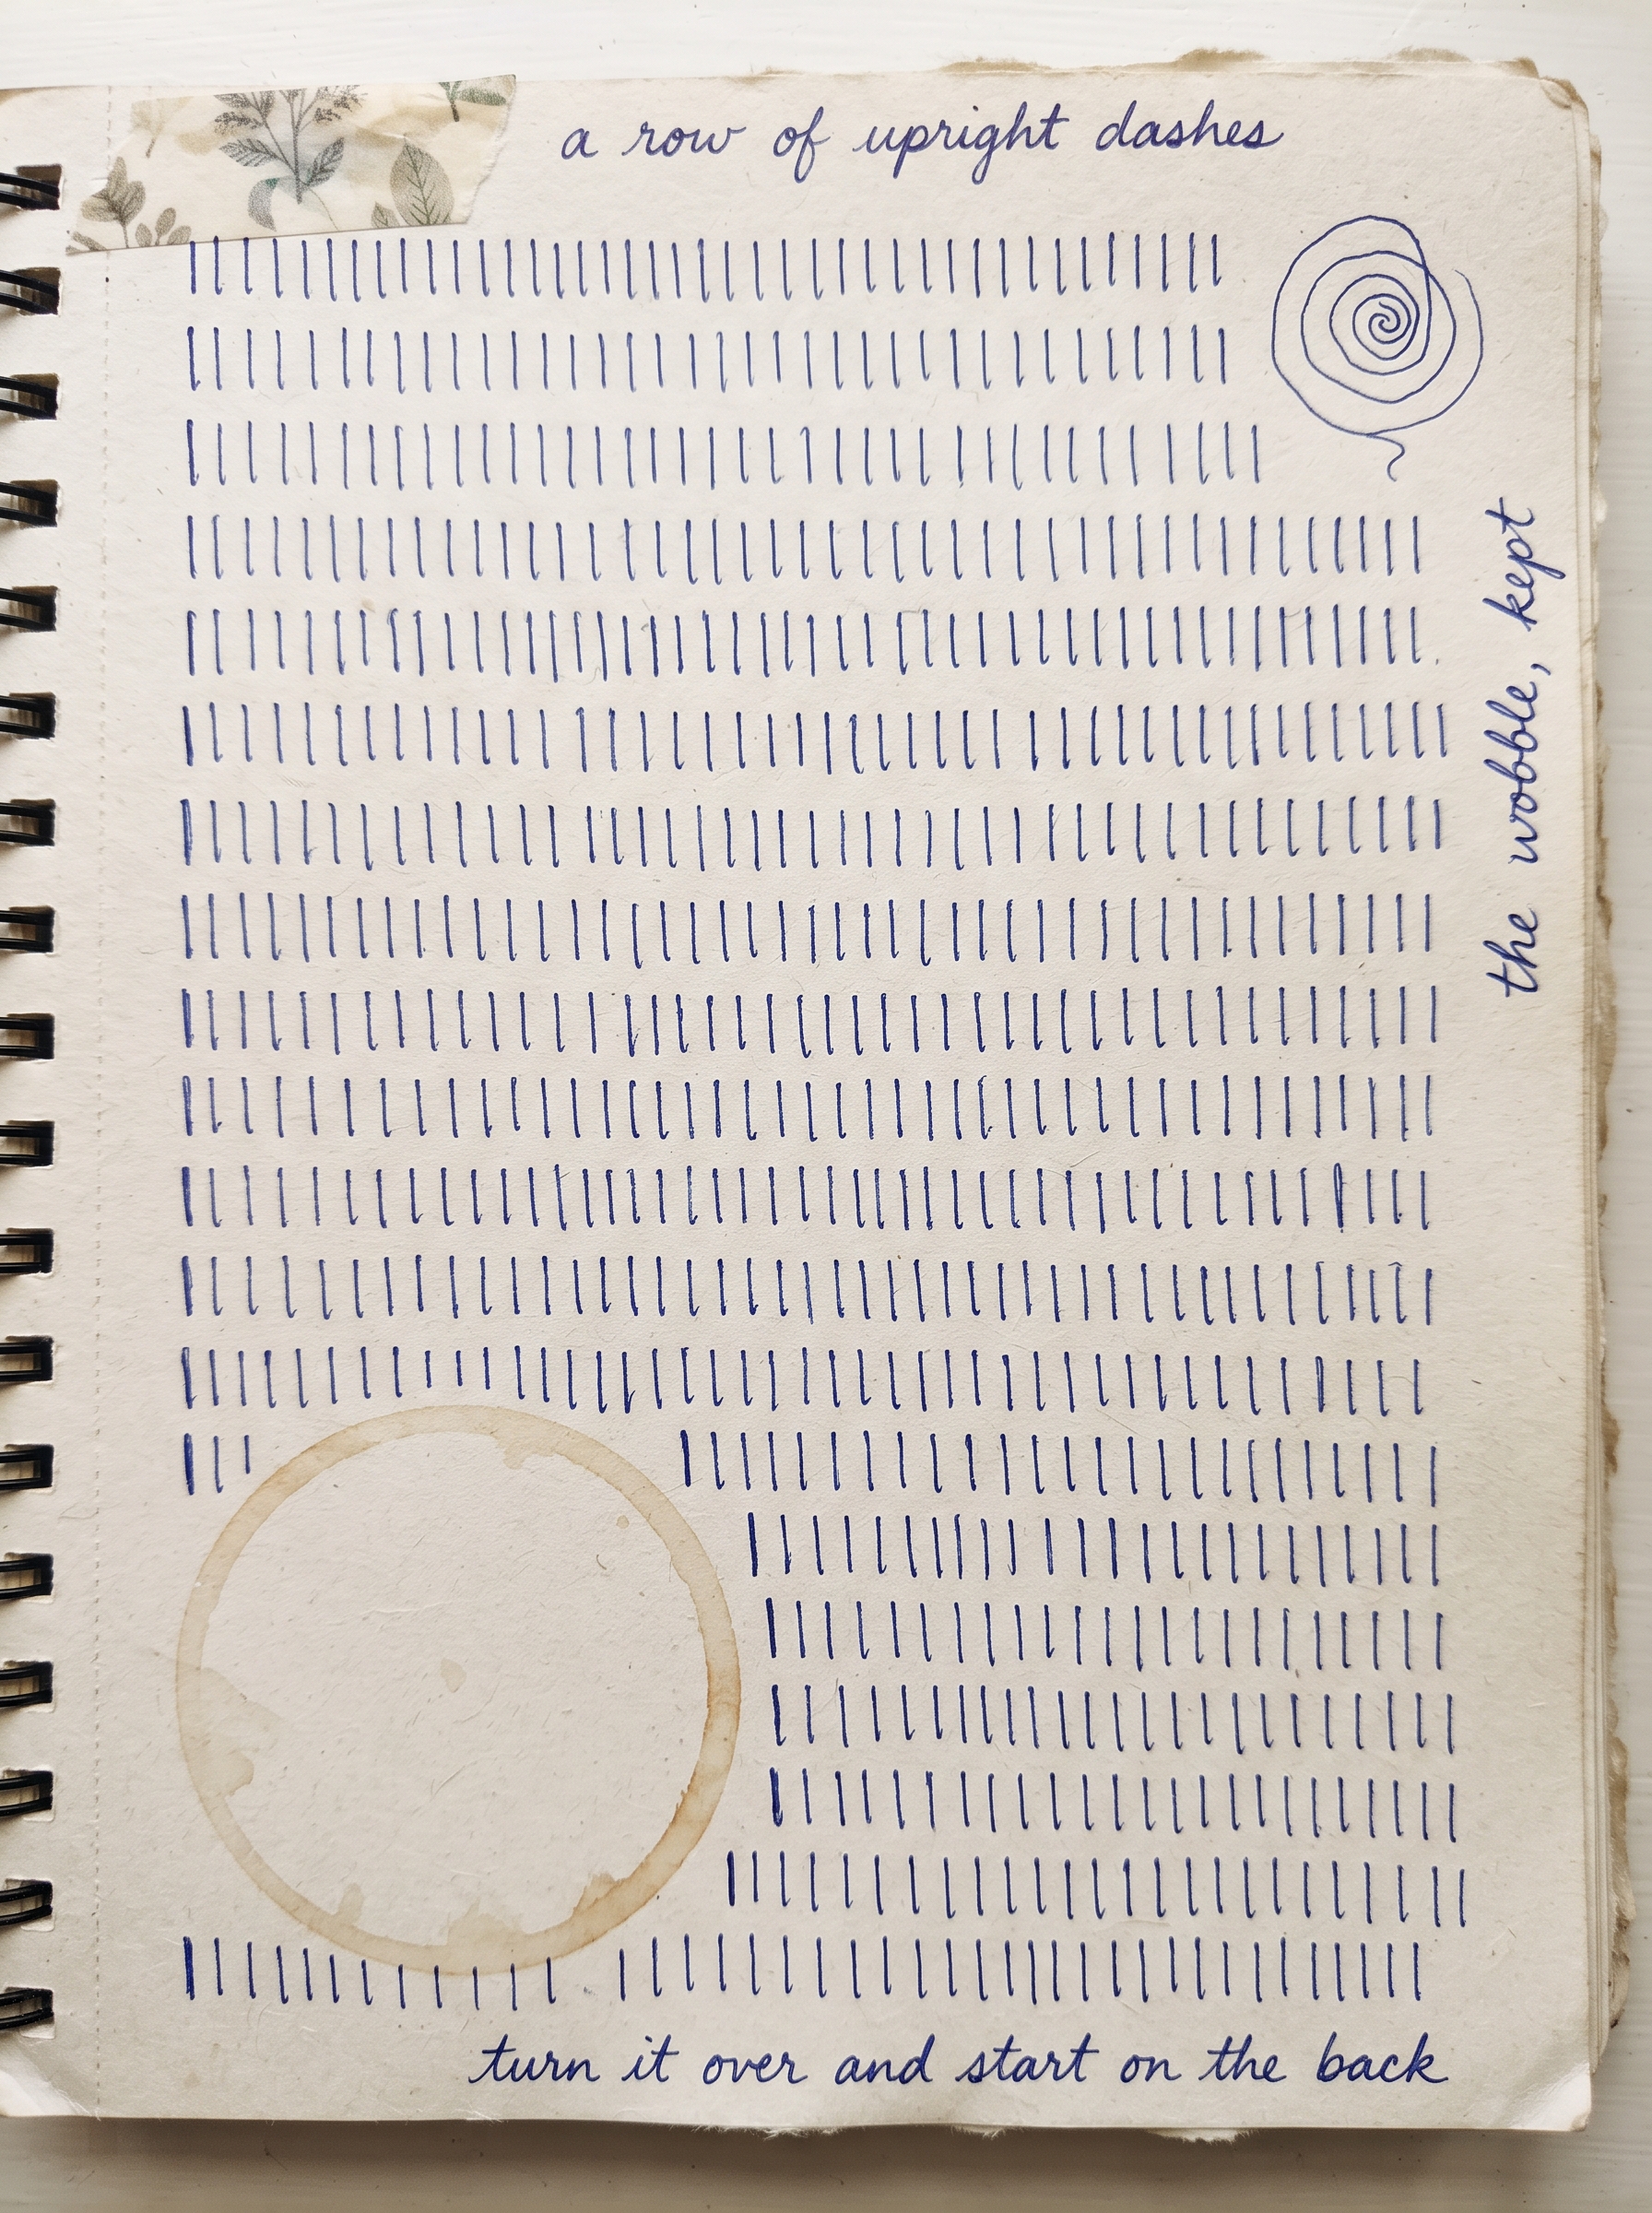 a row of upright dashes
the wobble, kept
turn it over and start on the back